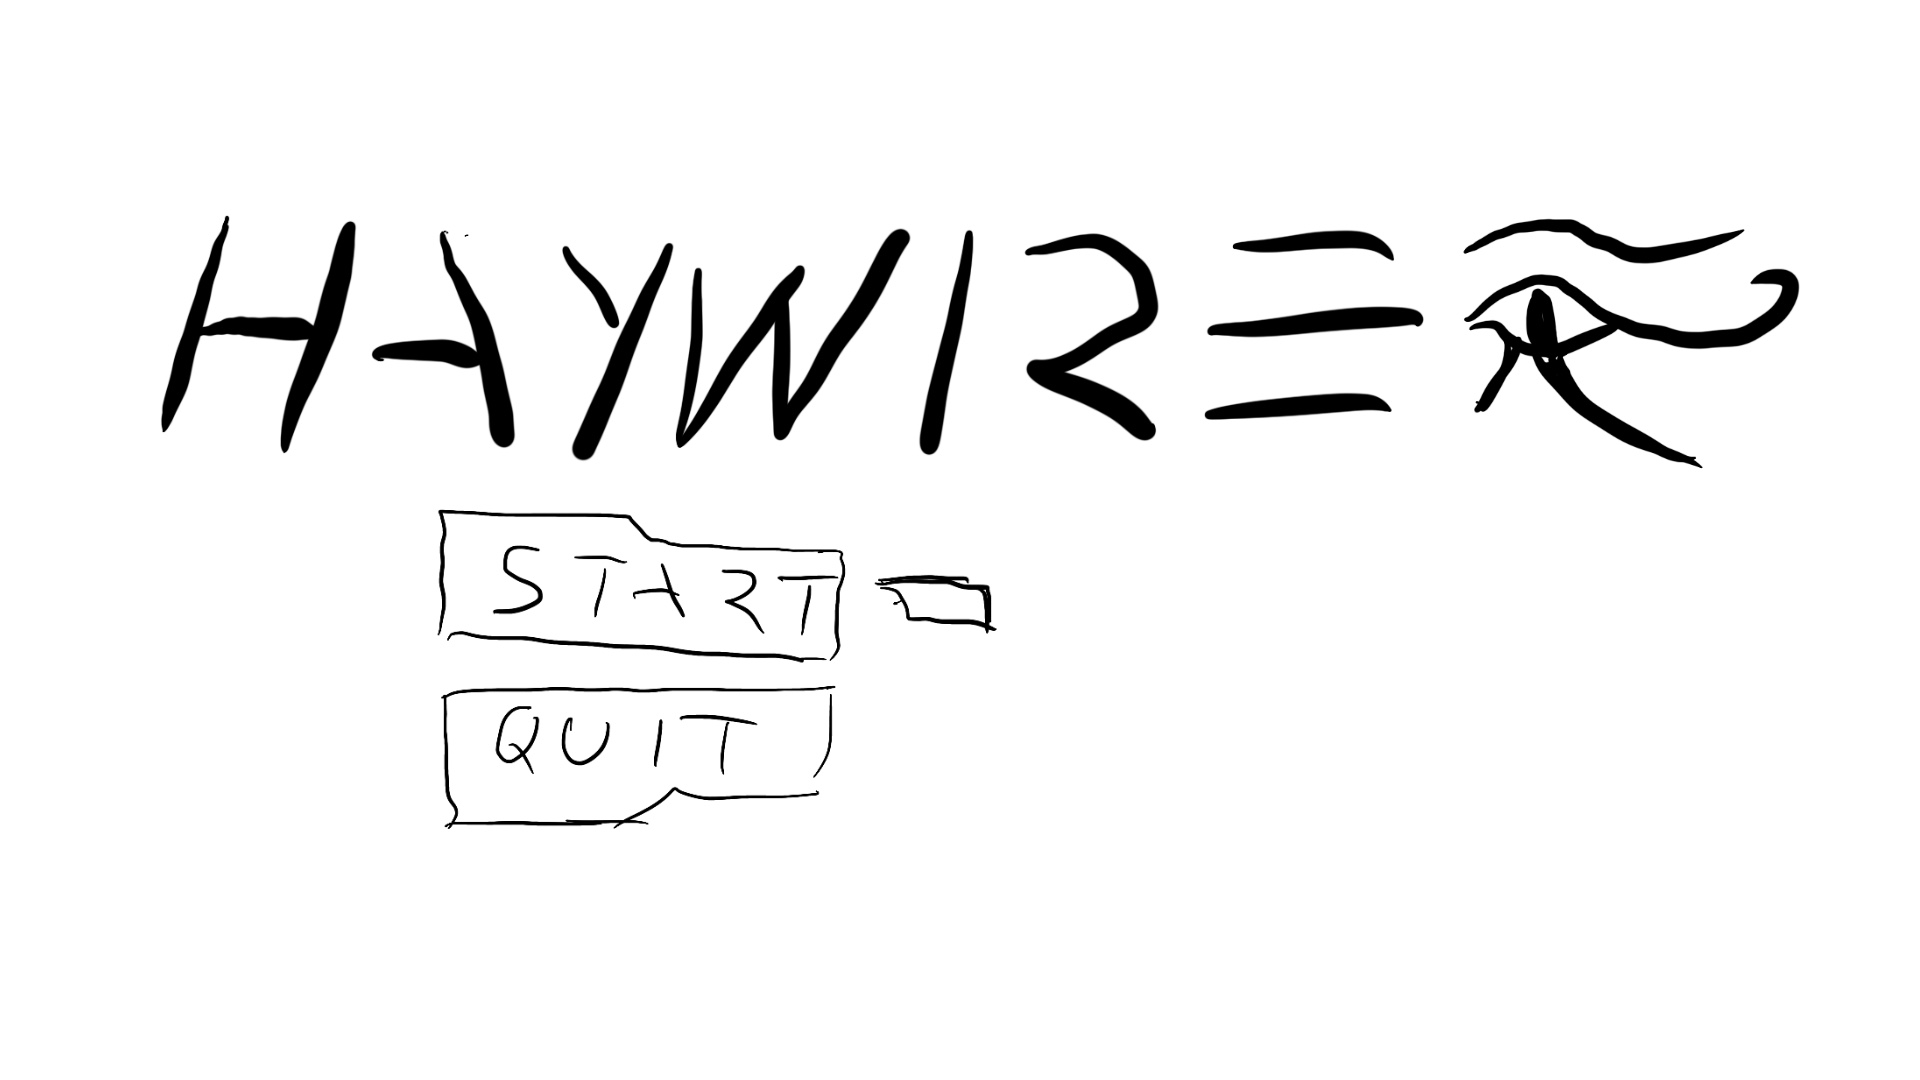 HAYWIRE
START
QUIT